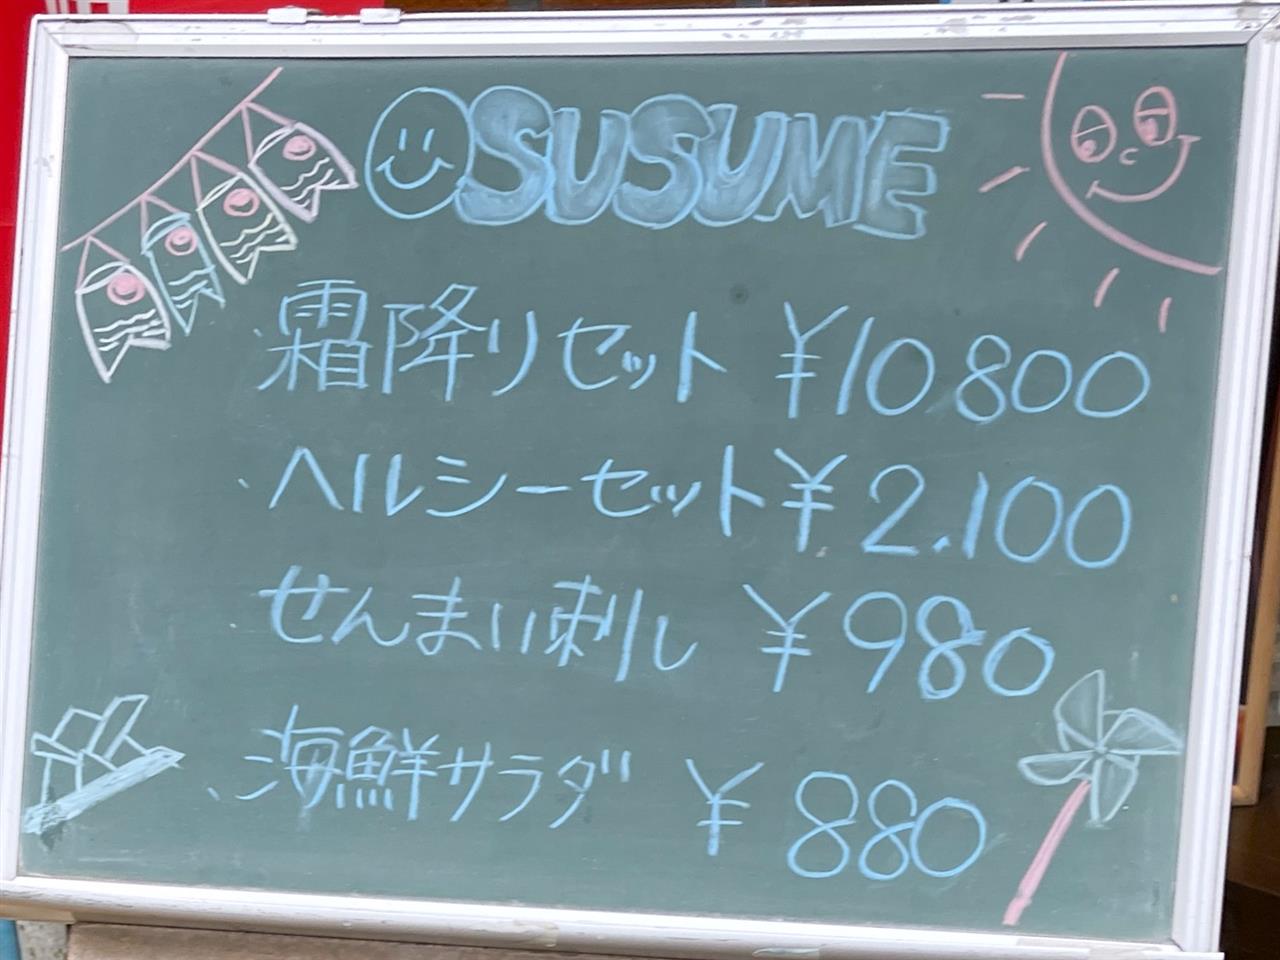 OSUSUME
霜降りセット ¥10800
ヘルシーセット ¥2.100
せんまい刺し ¥980
海鮮サラダ ¥880